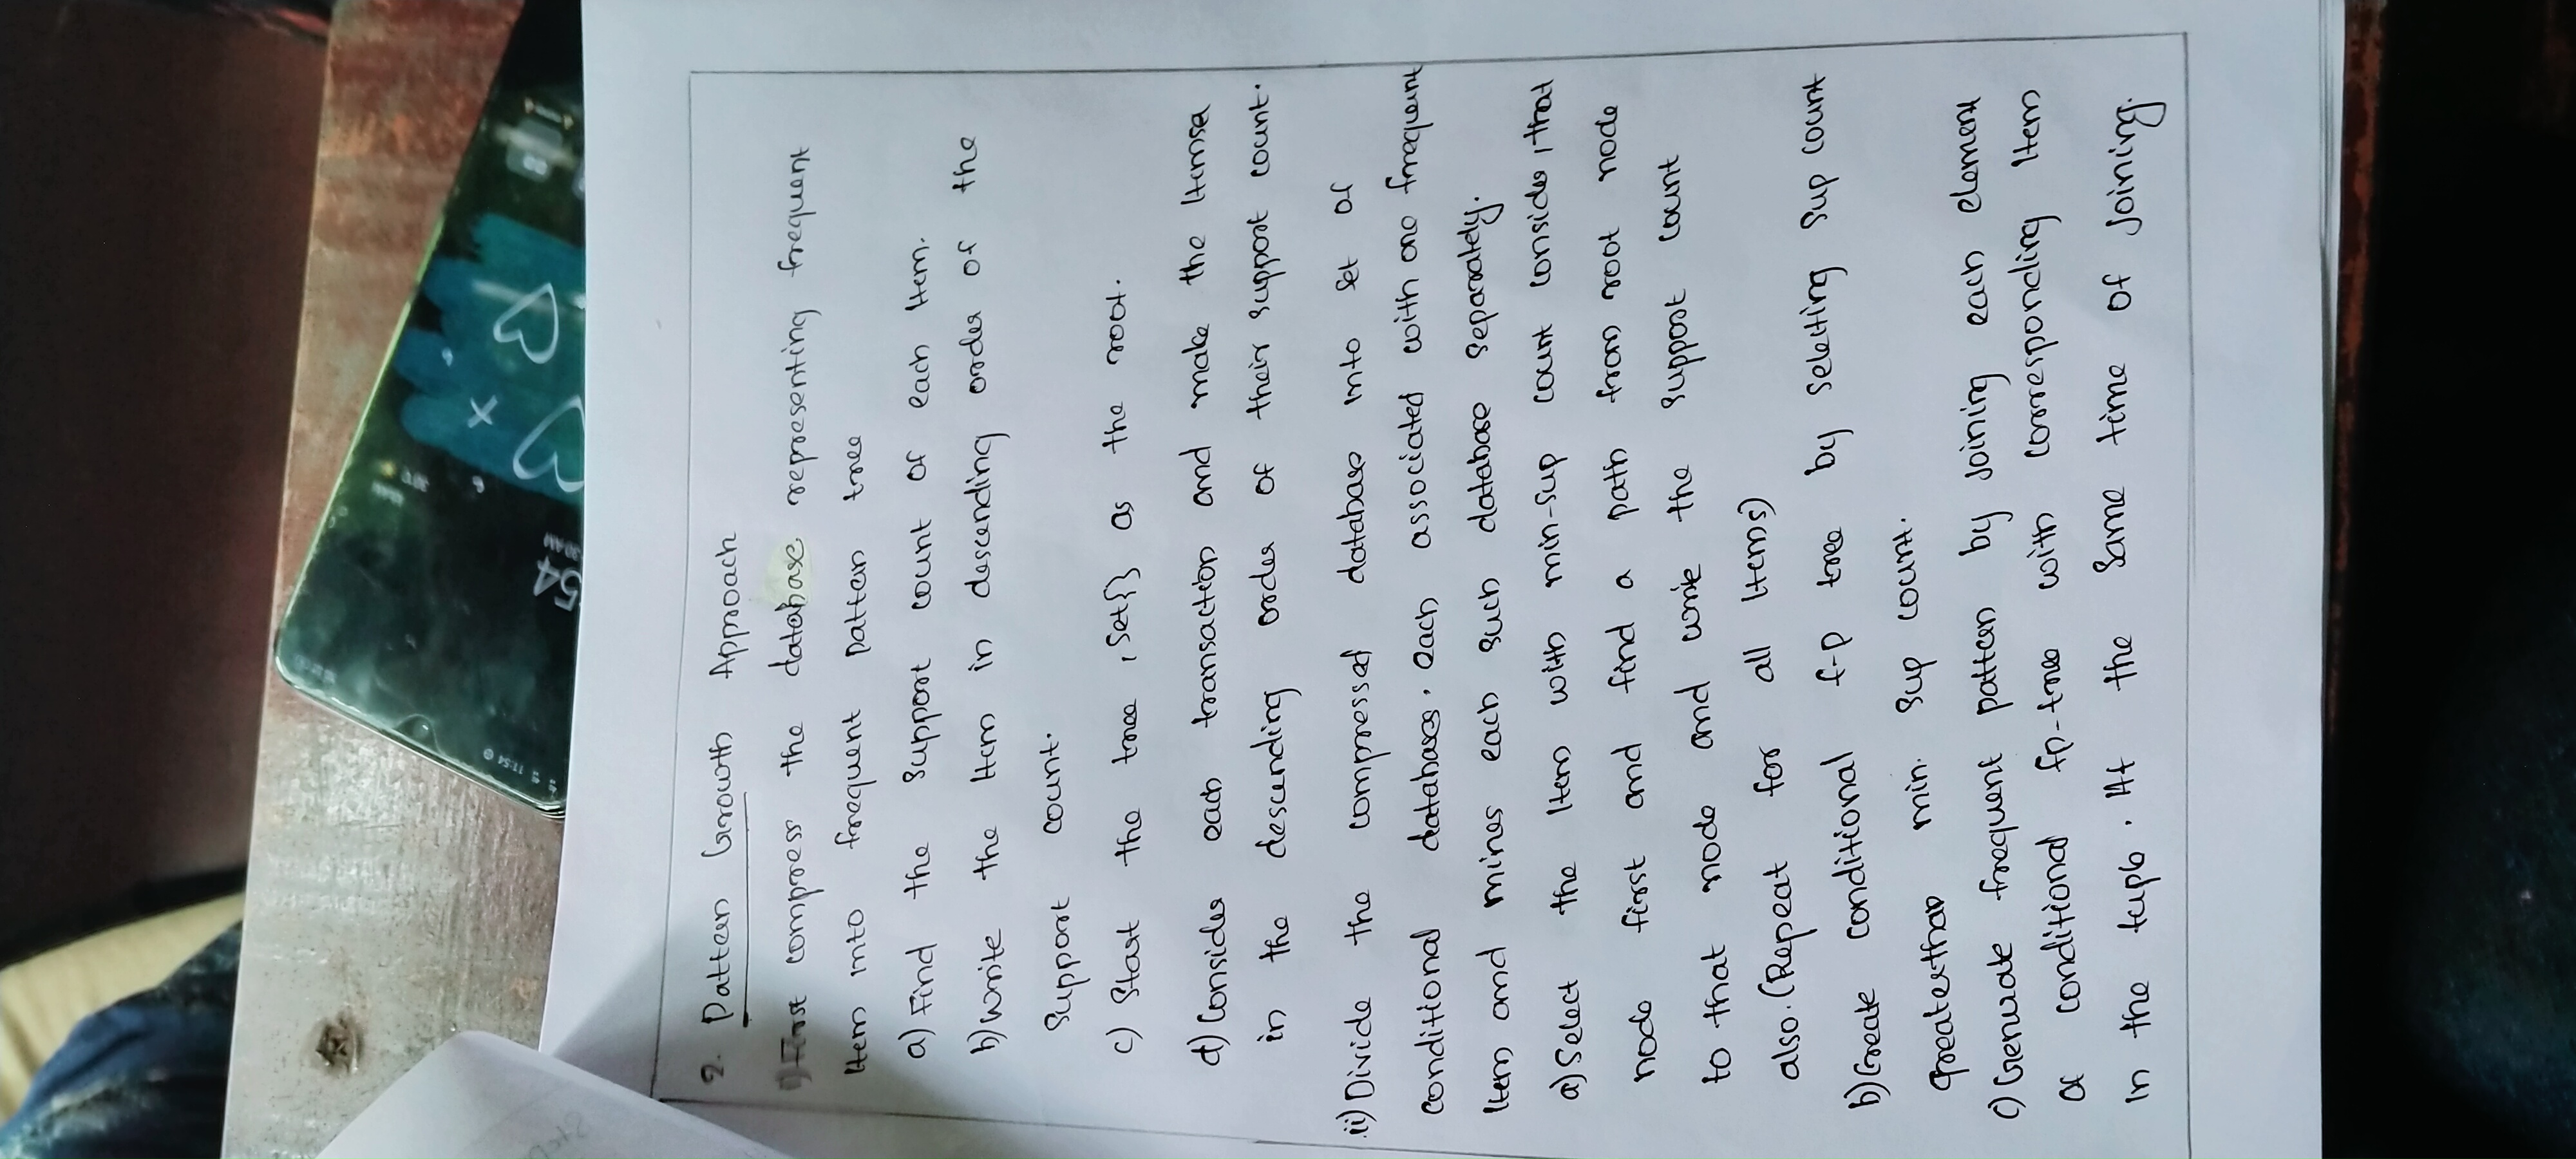 11:54
54
30 AM
2. Pattern Growth Approach
i) First compress the database representing frequent
item into frequent pattern tree
a) Find the support count of each item.
b) Write the item in descending order of the
support count.
c) Start the tree, Set{} as the root.
d) Consider each transaction and make the itemse
in the descending order of their support count.
ii) Divide the compressed database into set of
conditional databases. each associated with one frequent
item and mines each such database separately.
a) Select the item with min-sup count consider, that
node first and find a path from root node
to that node and write the support count
also. (Repeat for all items)
b) Create conditional f-p tree by selecting sup count
greaterthan min. sup count.
c) Generate frequent pattern by joining each element
of conditional fp-tree with corresponding item
in the tuple. At the same time of joining.